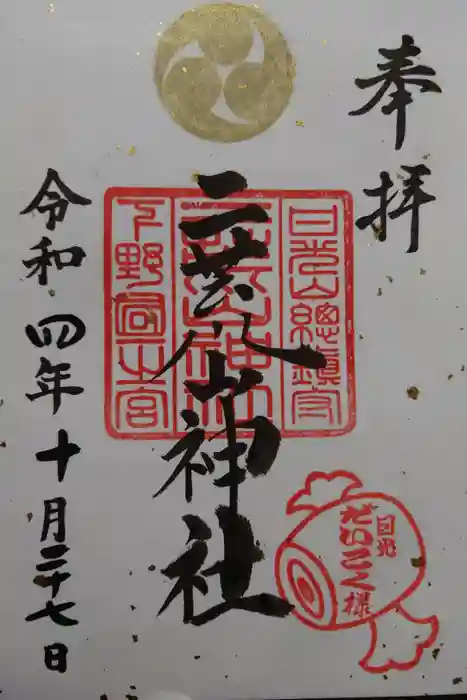 奉拝
二荒山神社
令和四年十月二十七日
日光山總鎮守
二荒山神社
下野國一之宮
日光
だいこく様